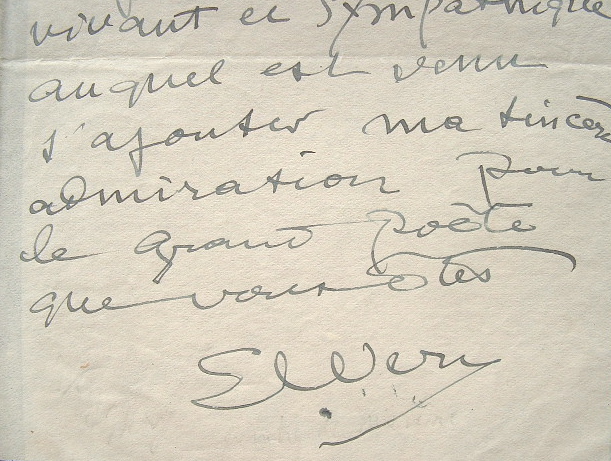 vivant et sympathique
auquel est venu
s'ajouter ma sincère
admiration pour
le grand poète
que vous êtes